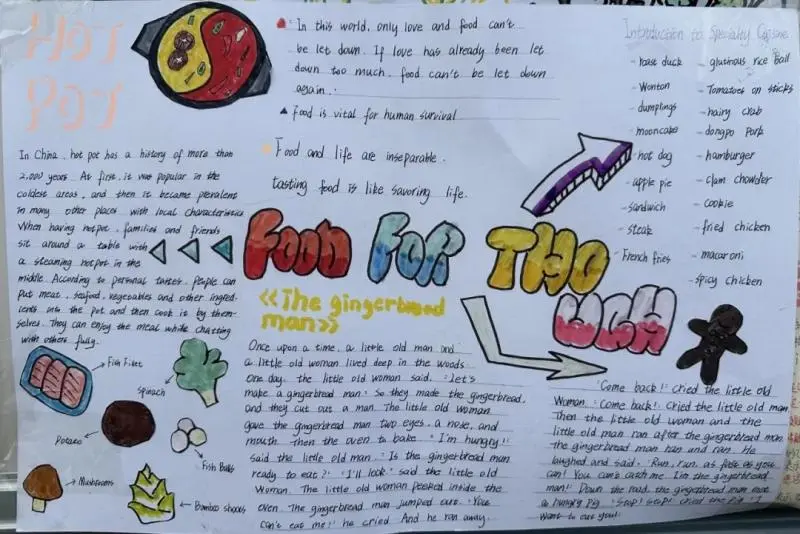 HOT
POT
In China, hot pot has a history of more than
2,000 years. At first, it was popular in the
coldest areas, and then it became prevalent
in many other places with local characteristics
When having hotpot, families and friends
sit around a table with
a steaming hotpot in the
middle. According to personal tastes, people can
put meat, seafood, vegetables and other ingred-
ients into the pot and then cook it by them-
selves. They can enjoy the meal while chatting
with others fully.
Fish Fillet
Spinach
Potato
Fish Balls
Mushrooms
Bamboo shoots
In this world, only love and food can't
be let down. If love has already been let
down too much, food can't be let down
again.
Food is vital for human survival
Food and life are inseparable.
tasting food is like savoring life.
FOOD FOR THO
UGH
<<The gingerbread
man>>
Once upon a time, a little old man and
a little old woman lived deep in the woods
One day, the little old woman said, "Let's
make a gingerbread man." So they made the gingerbread,
and they cut out a man. The little old woman
gave the gingerbread man two eyes, a nose, and
mouth. Then the oven to bake. "I'm hungry!"
said the little old man. "Is the gingerbread man
ready to eat?" "I'll look" said the little old
Woman. The little old woman peeked inside the
oven. The gingerbread man jumped out. "You
can't eat me!" he cried. And he ran away.
Introduction to Specialty Cuisine
- roast duck
- Wonton
- dumplings
- mooncake
- hot dog
- apple pie
- sandwich
- steak
- French fries
- glutinous rice ball
- Tomatoes on sticks
- hairy crab
- dongpo pork
- hamburger
- clam chowder
- cookie
- fried chicken
- macaroni
- spicy chicken
"Come back!" cried the little old
Woman. "Come back!" Cried the little old man
Then the little old woman and the
little old man ran after the gingerbread man
the gingerbread man ran and ran. He
laughed and said, "Run, run, as fast as you
can! You can't catch me. I'm the gingerbread
man!" Down the road, the gingerbread man met
a hungry pig. "Stop! Stop!" cried the pig. "I
want to eat you!"